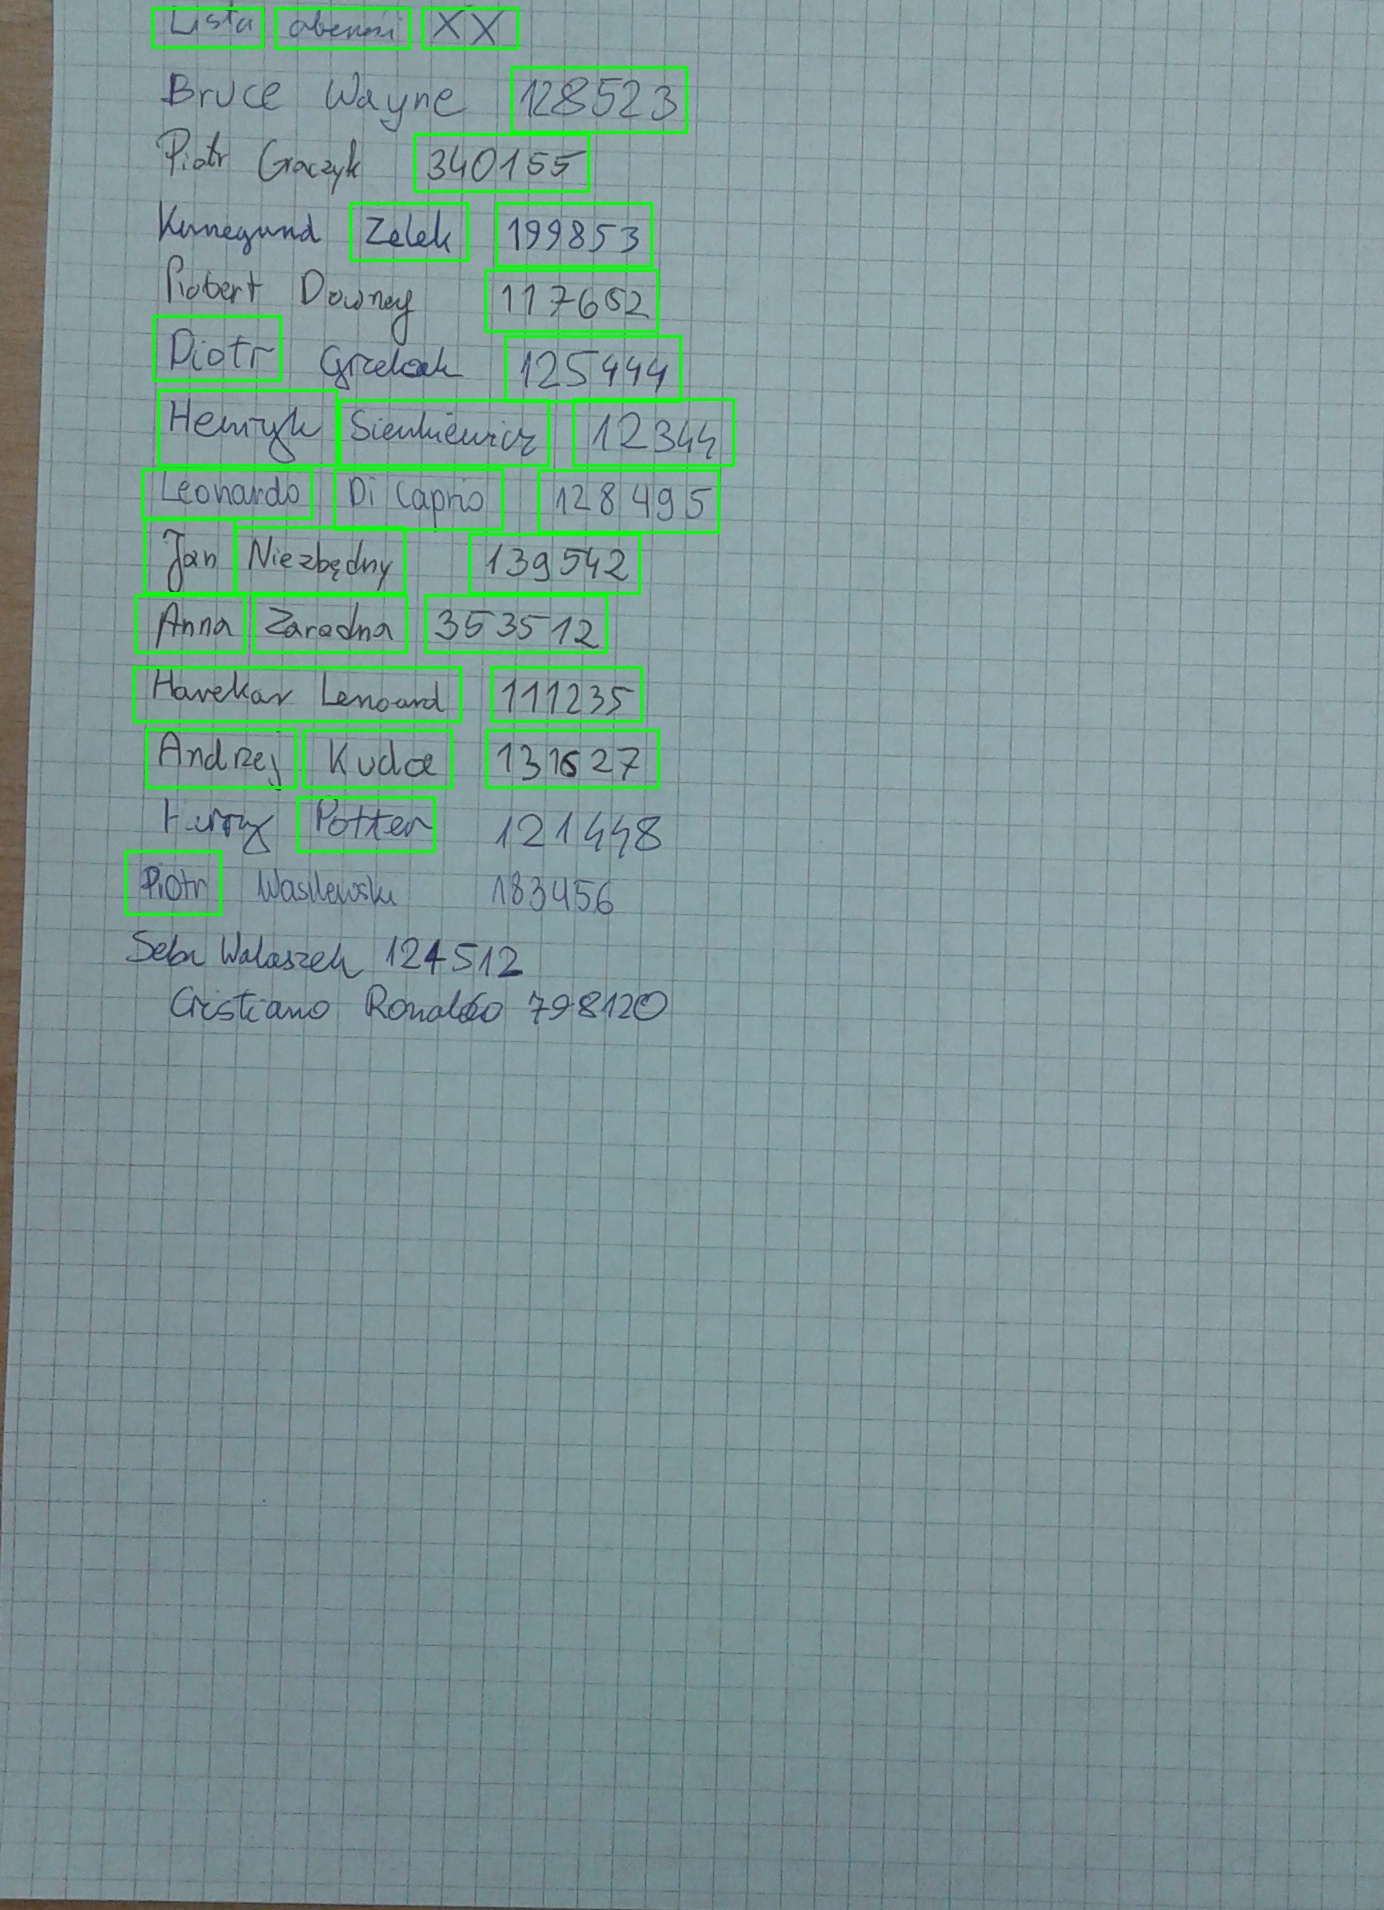 Lista obecności XX
Bruce Wayne 128523
Piotr Graczyk 340155
Kunegund Zelek 199853
Robert Downey 117652
Piotr 125444
Henryk Sienkiewicz 12344
Leonardo Di Caprio 128495
Jan Niezbędny 139542
Anna Zaradna 353512
Havekar Lenoard 111235
Andrzej Kudca 131527
Harry Potter 121448
Piotr Wasilewski 183456
Seba Walaszek 124512
Cristiano Ronaldo 798120